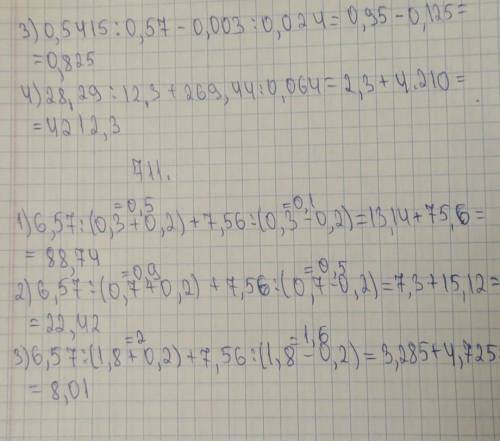 3) 0,5415 : 0,57 - 0,003 : 0,024 = 0,95 - 0,125 =
= 0,825
4) 28,29 : 12,3 + 269,44 : 0,064 = 2,3 + 4.210 =
= 4212,3
711.
=0,5 =0,1
1) 6,57 : (0,3 + 0,2) + 7,56 : (0,3 - 0,2) = 13,14 + 75,6 =
= 88,74
=0,9 =0,5
2) 6,57 : (0,7 + 0,2) + 7,56 : (0,7 - 0,2) = 7,3 + 15,12 =
= 22,42
=2 =1,6
3) 6,57 : (1,8 + 0,2) + 7,56 : (1,8 - 0,2) = 3,285 + 4,725
= 8,01